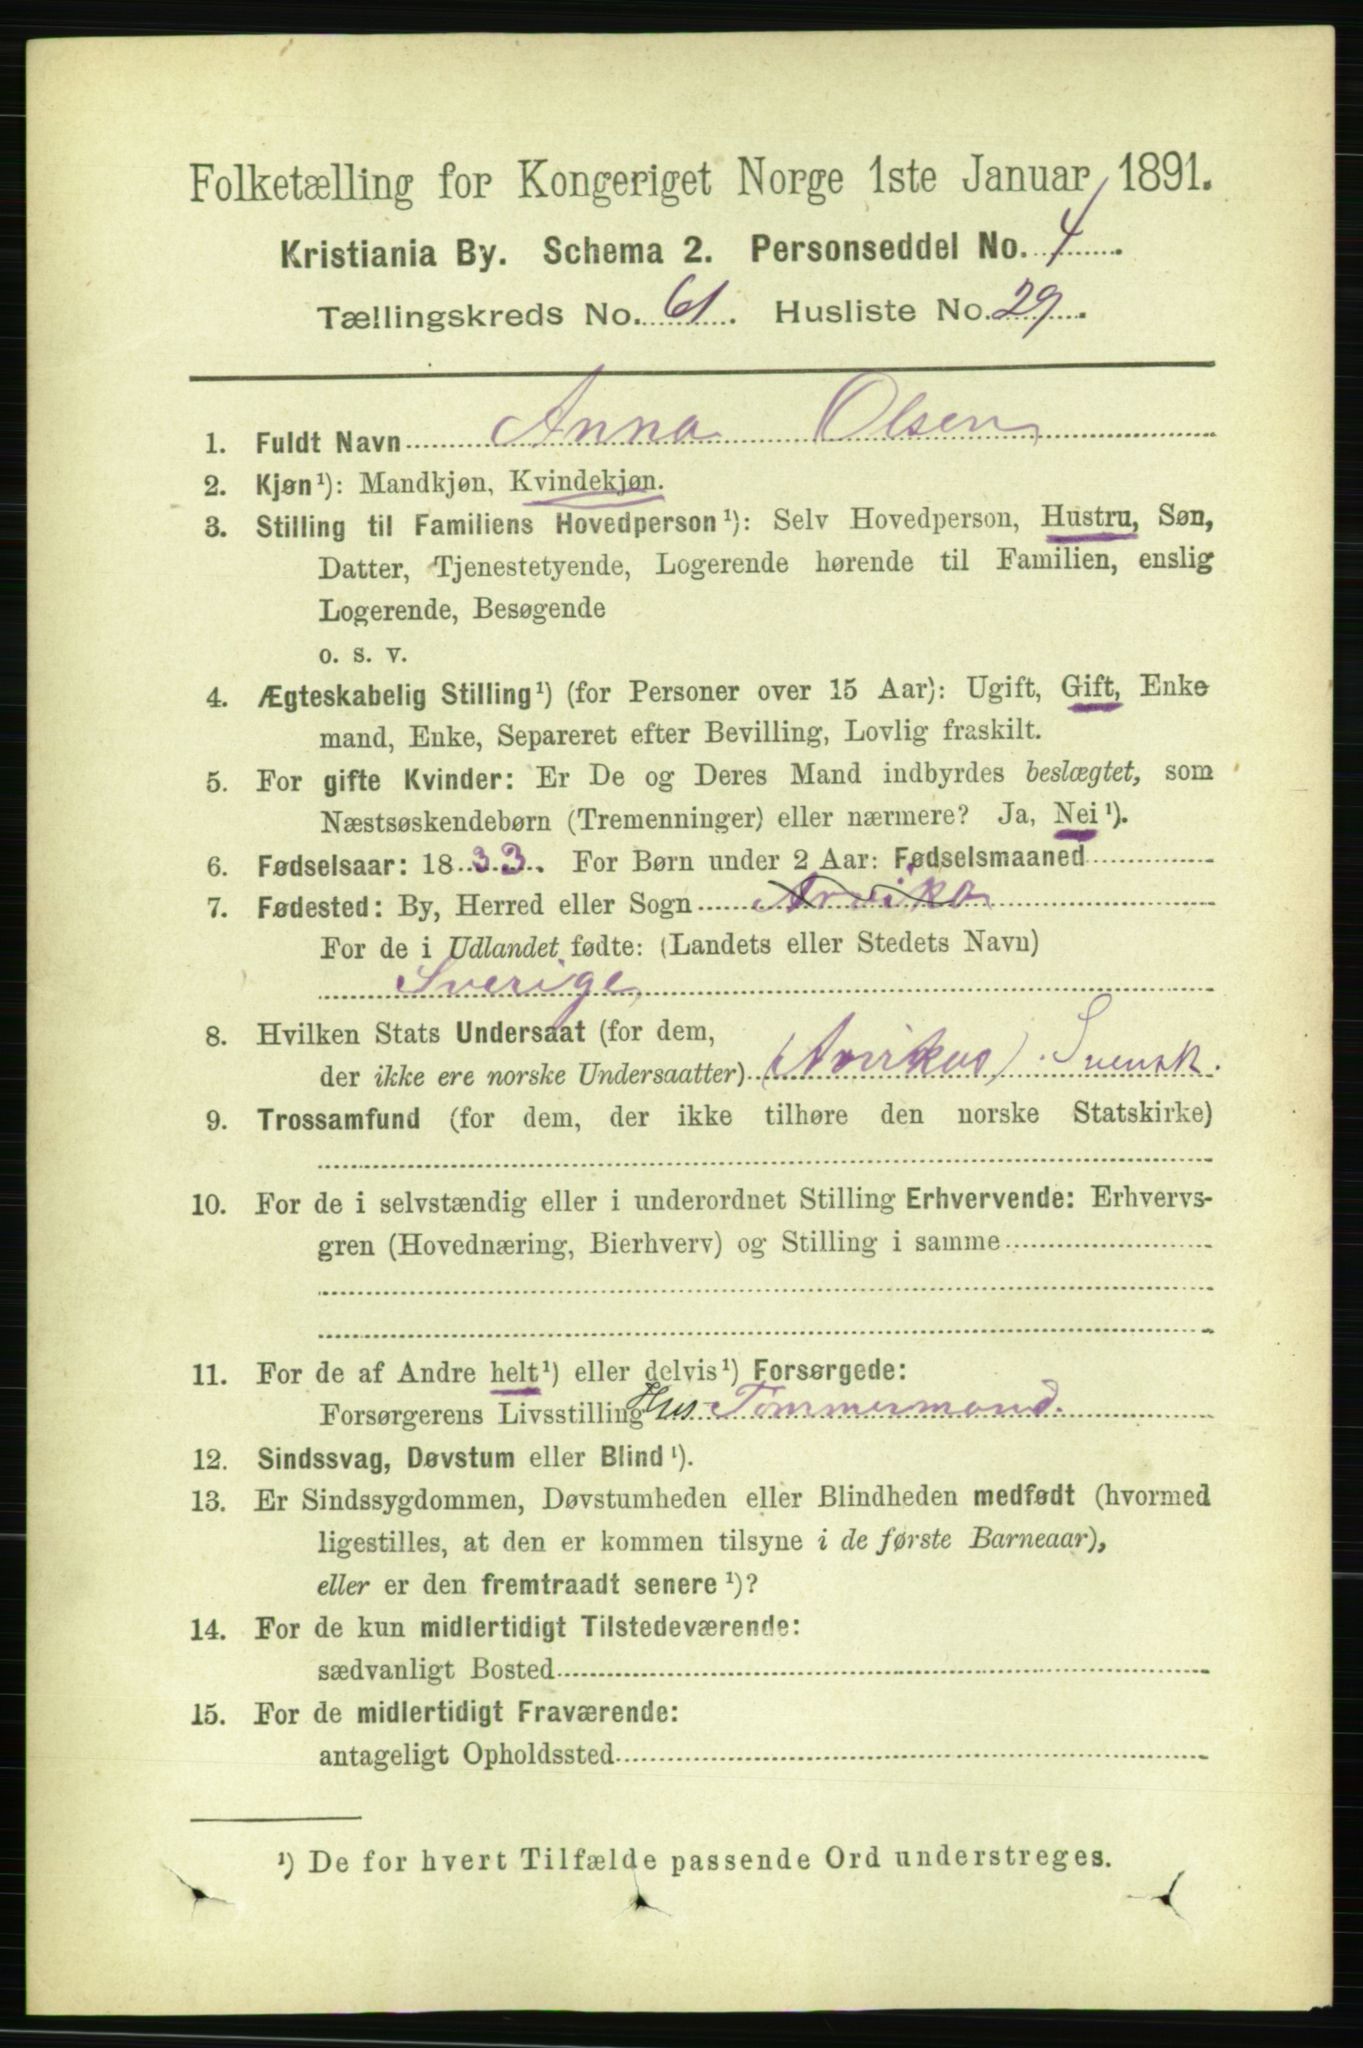 Folketælling for Kongeriget Norge 1ste Januar 1891.
Kristiania By. Schema 2. Personseddel No. 4
Tællingskreds No. 61. Husliste No. 29.
1. Fuldt Navn Anna Olsen
2. Kjøn¹): Mandkjøn, Kvindekjøn.
3. Stilling til Familiens Hovedperson¹): Selv Hovedperson, Hustru, Søn,
Datter, Tjenestetyende, Logerende hørende til Familien, enslig
Logerende, Besøgende
o. s. v.
4. Ægteskabelig Stilling¹) (for Personer over 15 Aar): Ugift, Gift, Enke
mand, Enke, Separeret efter Bevilling, Lovlig fraskilt.
5. For gifte Kvinder: Er De og Deres Mand indbyrdes beslægtet, som
Næstsøskendebørn (Tremenninger) eller nærmere? Ja, Nei¹).
6. Fødselsaar: 1833. For Børn under 2 Aar: Fødselsmaaned
7. Fødested: By, Herred eller Sogn Arvika
For de i Udlandet fødte: (Landets eller Stedets Navn)
Sverige
8. Hvilken Stats Undersaat (for dem,
der ikke ere norske Undersaatter) Svensk.
9. Trossamfund (for dem, der ikke tilhøre den norske Statskirke)
10. For de i selvstændig eller i underordnet Stilling Erhvervende: Erhvervs-
gren (Hovednæring, Bierhverv) og Stilling i samme
11. For de af Andre helt¹) eller delvis¹) Forsørgede:
Forsørgerens Livsstilling Hus Tømmermand.
12. Sindssvag, Døvstum eller Blind¹).
13. Er Sindssygdommen, Døvstumheden eller Blindheden medfødt (hvormed
ligestilles, at den er kommen tilsyne i de første Barneaar),
eller er den fremtraadt senere¹)?
14. For de kun midlertidigt Tilstedeværende:
sædvanligt Bosted
15. For de midlertidigt Fraværende:
antageligt Opholdssted
¹) De for hvert Tilfælde passende Ord understreges.